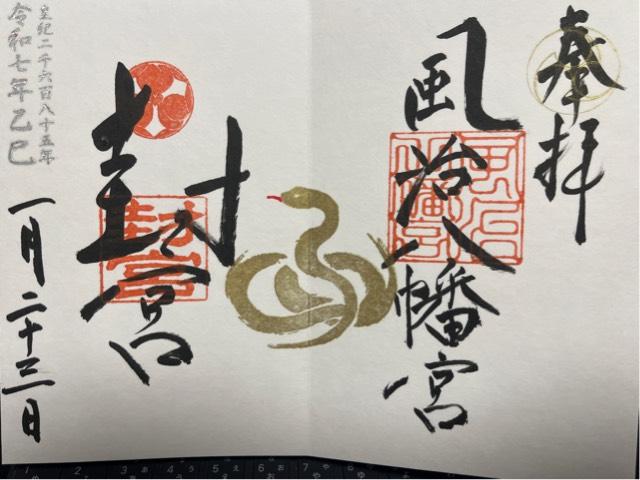 奉拝
風治八幡宮
封宮
皇紀二千六百八十五年
令和七年乙巳
一月二十三日